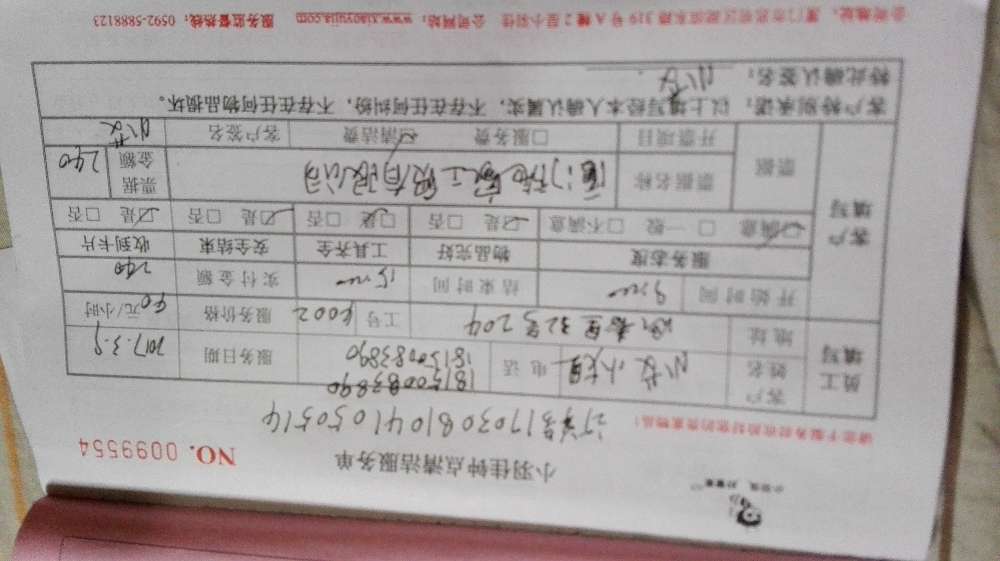 小羽佳钟点清洁服务单
NO. 0099554
请您于服务前收拾好您的贵重物品!
订单号1703081041050514
员工填写
客户姓名 小姐 电话 18150083890 服务日期 2017.3.9
18150083890
地址 32号204 工号 6002 服务价格 40 元/小时
开始时间 9:00 结束时间 15:00 实付金额 240
客户填写
服务态度 物品完好 工具齐全 安全结束 收到卡片
☑满意 □一般 □不满意 ☑是 □否 ☑是 □否 ☑是 □否 ☑是 □否
票据 票据名称 有限公司 票据金额 240
开票项目 □服务费 ☑清洁费 客户签名
客户特别承诺:以上填写经本人确认属实,不存在任何纠纷,不存在任何物品损坏。
特此确认签名:
公司地址:厦门市 319号A幢2层小羽佳 公司网站:www.xiaoyujia.com 服务监督热线:0592-5888123